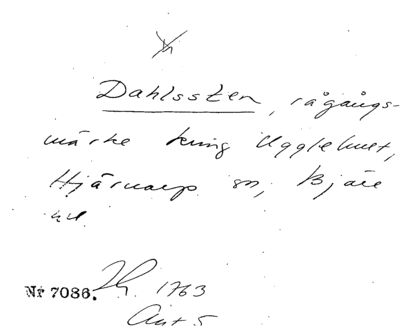 Dahlssten, rågångs-
märke kring Ugglehult,
Hjärnarp sn, Bjäre
hd.
Nr 7086. Th. 1763
Akt 5